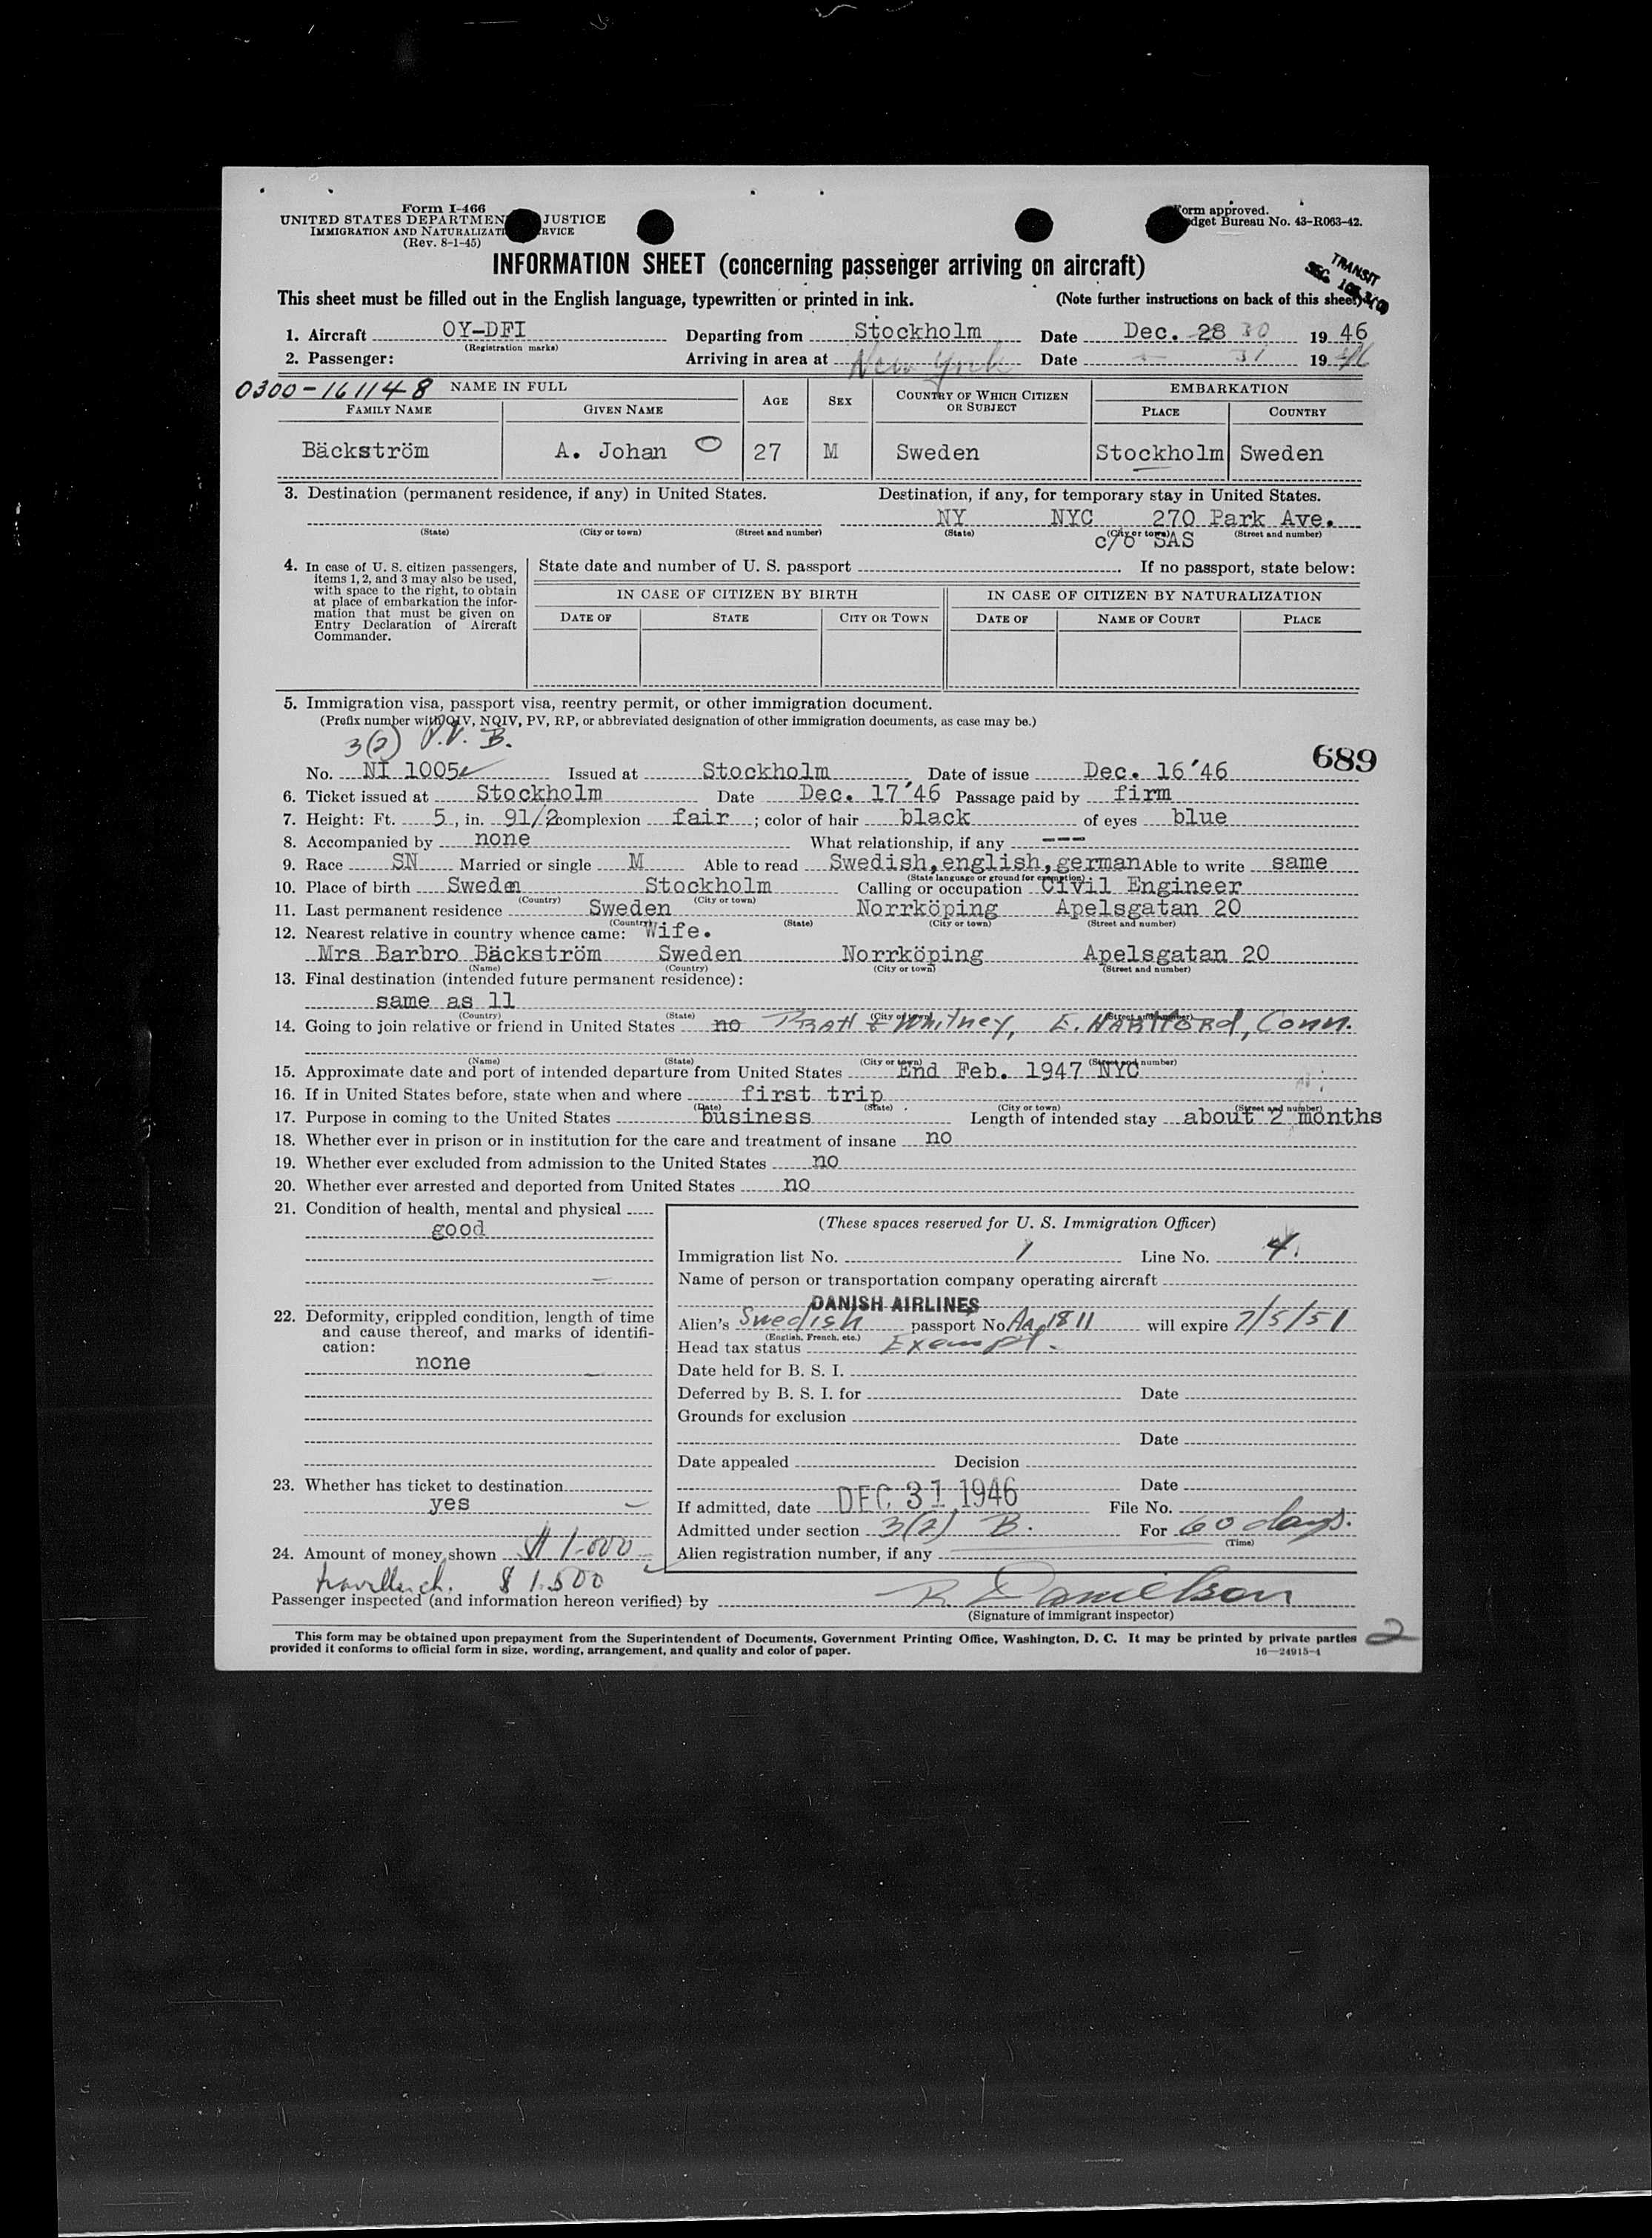 Form I-466
UNITED STATES DEPARTMEN JUSTICE
IMMIGRATION AND NATURALIZATI RVICE
(Rev. 8-1-45)
orm approved.
dget Bureau No. 43-R063-42.
INFORMATION SHEET (concerning passenger arriving on aircraft)
TRANSIT
SEC
This sheet must be filled out in the English language, typewritten or printed in ink. (Note further instructions on back of this sheet)
1. Aircraft OY-DFI Departing from Stockholm Date Dec. 28 30 19 46
(Registration marks)
2. Passenger: Arriving in area at New York Date 31 19 46
0300-161148 NAME IN FULL AGE SEX COUNTRY OF WHICH CITIZEN OR SUBJECT EMBARKATION
FAMILY NAME GIVEN NAME PLACE COUNTRY
Bäckström A. Johan 27 M Sweden Stockholm Sweden
3. Destination (permanent residence, if any) in United States. Destination, if any, for temporary stay in United States.
NY NYC 270 Park Ave.
(State) (City or town) (Street and number) (State) (City or town) (Street and number)
c/o SAS
4. In case of U. S. citizen passengers, items 1, 2, and 3 may also be used, with space to the right, to obtain at place of embarkation the information that must be given on Entry Declaration of Aircraft Commander.
State date and number of U. S. passport If no passport, state below:
IN CASE OF CITIZEN BY BIRTH IN CASE OF CITIZEN BY NATURALIZATION
DATE OF STATE CITY OR TOWN DATE OF NAME OF COURT PLACE
5. Immigration visa, passport visa, reentry permit, or other immigration document.
(Prefix number with QIV, NQIV, PV, RP, or abbreviated designation of other immigration documents, as case may be.)
3(2) P.V. B.
689
No. NI 1005 Issued at Stockholm Date of issue Dec. 16'46
6. Ticket issued at Stockholm Date Dec. 17'46 Passage paid by firm
7. Height: Ft. 5, in. 91/2 complexion fair; color of hair black of eyes blue
8. Accompanied by none What relationship, if any ---
9. Race SN Married or single M Able to read Swedish,english,german Able to write same
(State language or ground for exemption)
10. Place of birth Sweden Stockholm Calling or occupation Civil Engineer
(Country) (City or town)
11. Last permanent residence Sweden Norrköping Apelsgatan 20
(Country) (State) (City or town) (Street and number)
12. Nearest relative in country whence came: Wife.
Mrs Barbro Bäckström Sweden Norrköping Apelsgatan 20
(Name) (Country) (City or town) (Street and number)
13. Final destination (intended future permanent residence):
same as 11
(Country) (State) (City or town) (Street and number)
14. Going to join relative or friend in United States no Pratt & Whitney, E. Hartford, Conn.
(Name) (State) (City or town) (Street and number)
15. Approximate date and port of intended departure from United States End Feb. 1947 NYC
16. If in United States before, state when and where first trip
(Date) (State) (City or town) (Street and number)
17. Purpose in coming to the United States business Length of intended stay about 2 months
18. Whether ever in prison or in institution for the care and treatment of insane no
19. Whether ever excluded from admission to the United States no
20. Whether ever arrested and deported from United States no
21. Condition of health, mental and physical
good
(These spaces reserved for U. S. Immigration Officer)
Immigration list No. 1 Line No. 4.
Name of person or transportation company operating aircraft
DANISH AIRLINES
22. Deformity, crippled condition, length of time and cause thereof, and marks of identification:
none
Alien's Swedish passport No. AA 1811 will expire 7/5/51
(English, French, etc.)
Head tax status Exempt.
Date held for B. S. I.
Deferred by B. S. I. for Date
Grounds for exclusion
Date
Date appealed Decision
23. Whether has ticket to destination
yes
Date
If admitted, date DEC 31 1946 File No.
Admitted under section 3(2) B. For 60 days.
(Time)
24. Amount of money shown $ 1.000
Alien registration number, if any
travellersch. $ 1.500
Passenger inspected (and information hereon verified) by R. Danielson
(Signature of immigrant inspector)
This form may be obtained upon prepayment from the Superintendent of Documents, Government Printing Office, Washington, D. C. It may be printed by private parties
provided it conforms to official form in size, wording, arrangement, and quality and color of paper. 16—24915-4
2